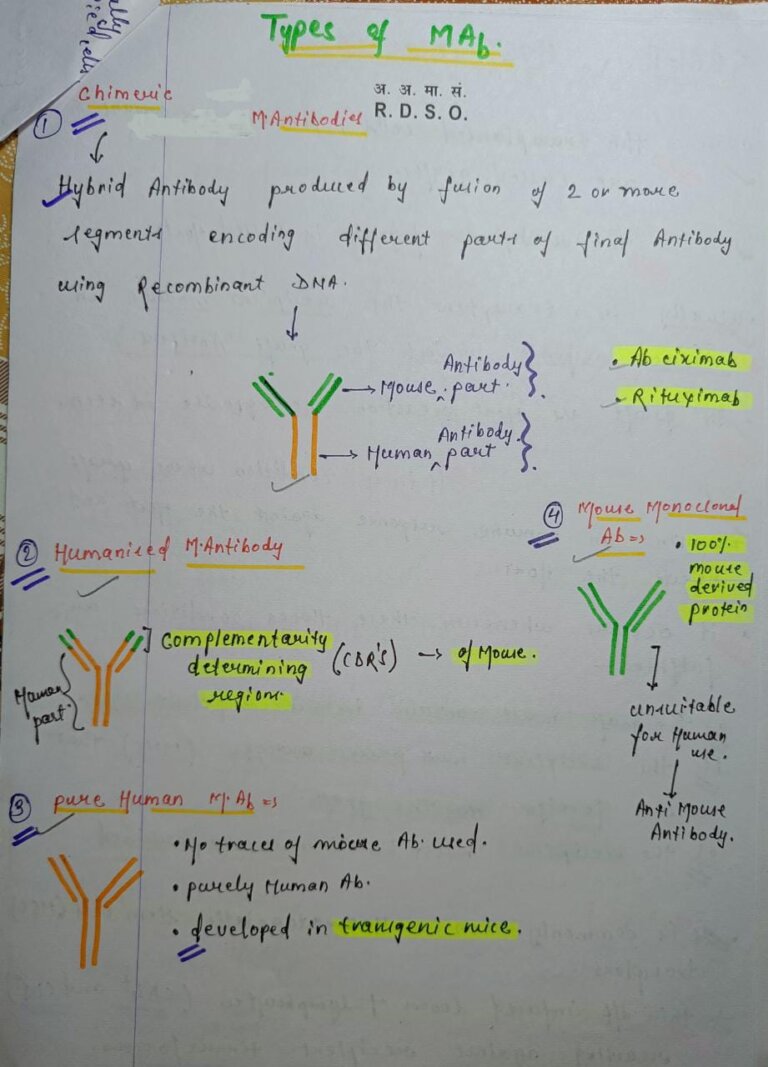 Types of MAb.
अ. अ. मा. सं.
R. D. S. O.
① Chimeric M.Antibodies
Hybrid Antibody produced by fusion of 2 or more
segments encoding different parts of final Antibody
using Recombinant DNA.
→ Mouse Antibody part.
→ Human Antibody part
• Abciximab
• Rituximab
② Humanised M.Antibody
Human
part
Complementarity
determining
regions
(CDR's) → of Mouse.
③ pure Human M.Ab ⇒
• No traces of mouse Ab. used.
• purely Human Ab.
• developed in transgenic mice.
④ Mouse Monoclonal
Ab ⇒
• 100%
mouse
derived
protein
unsuitable
for Human
use.
Anti Mouse
Antibody.